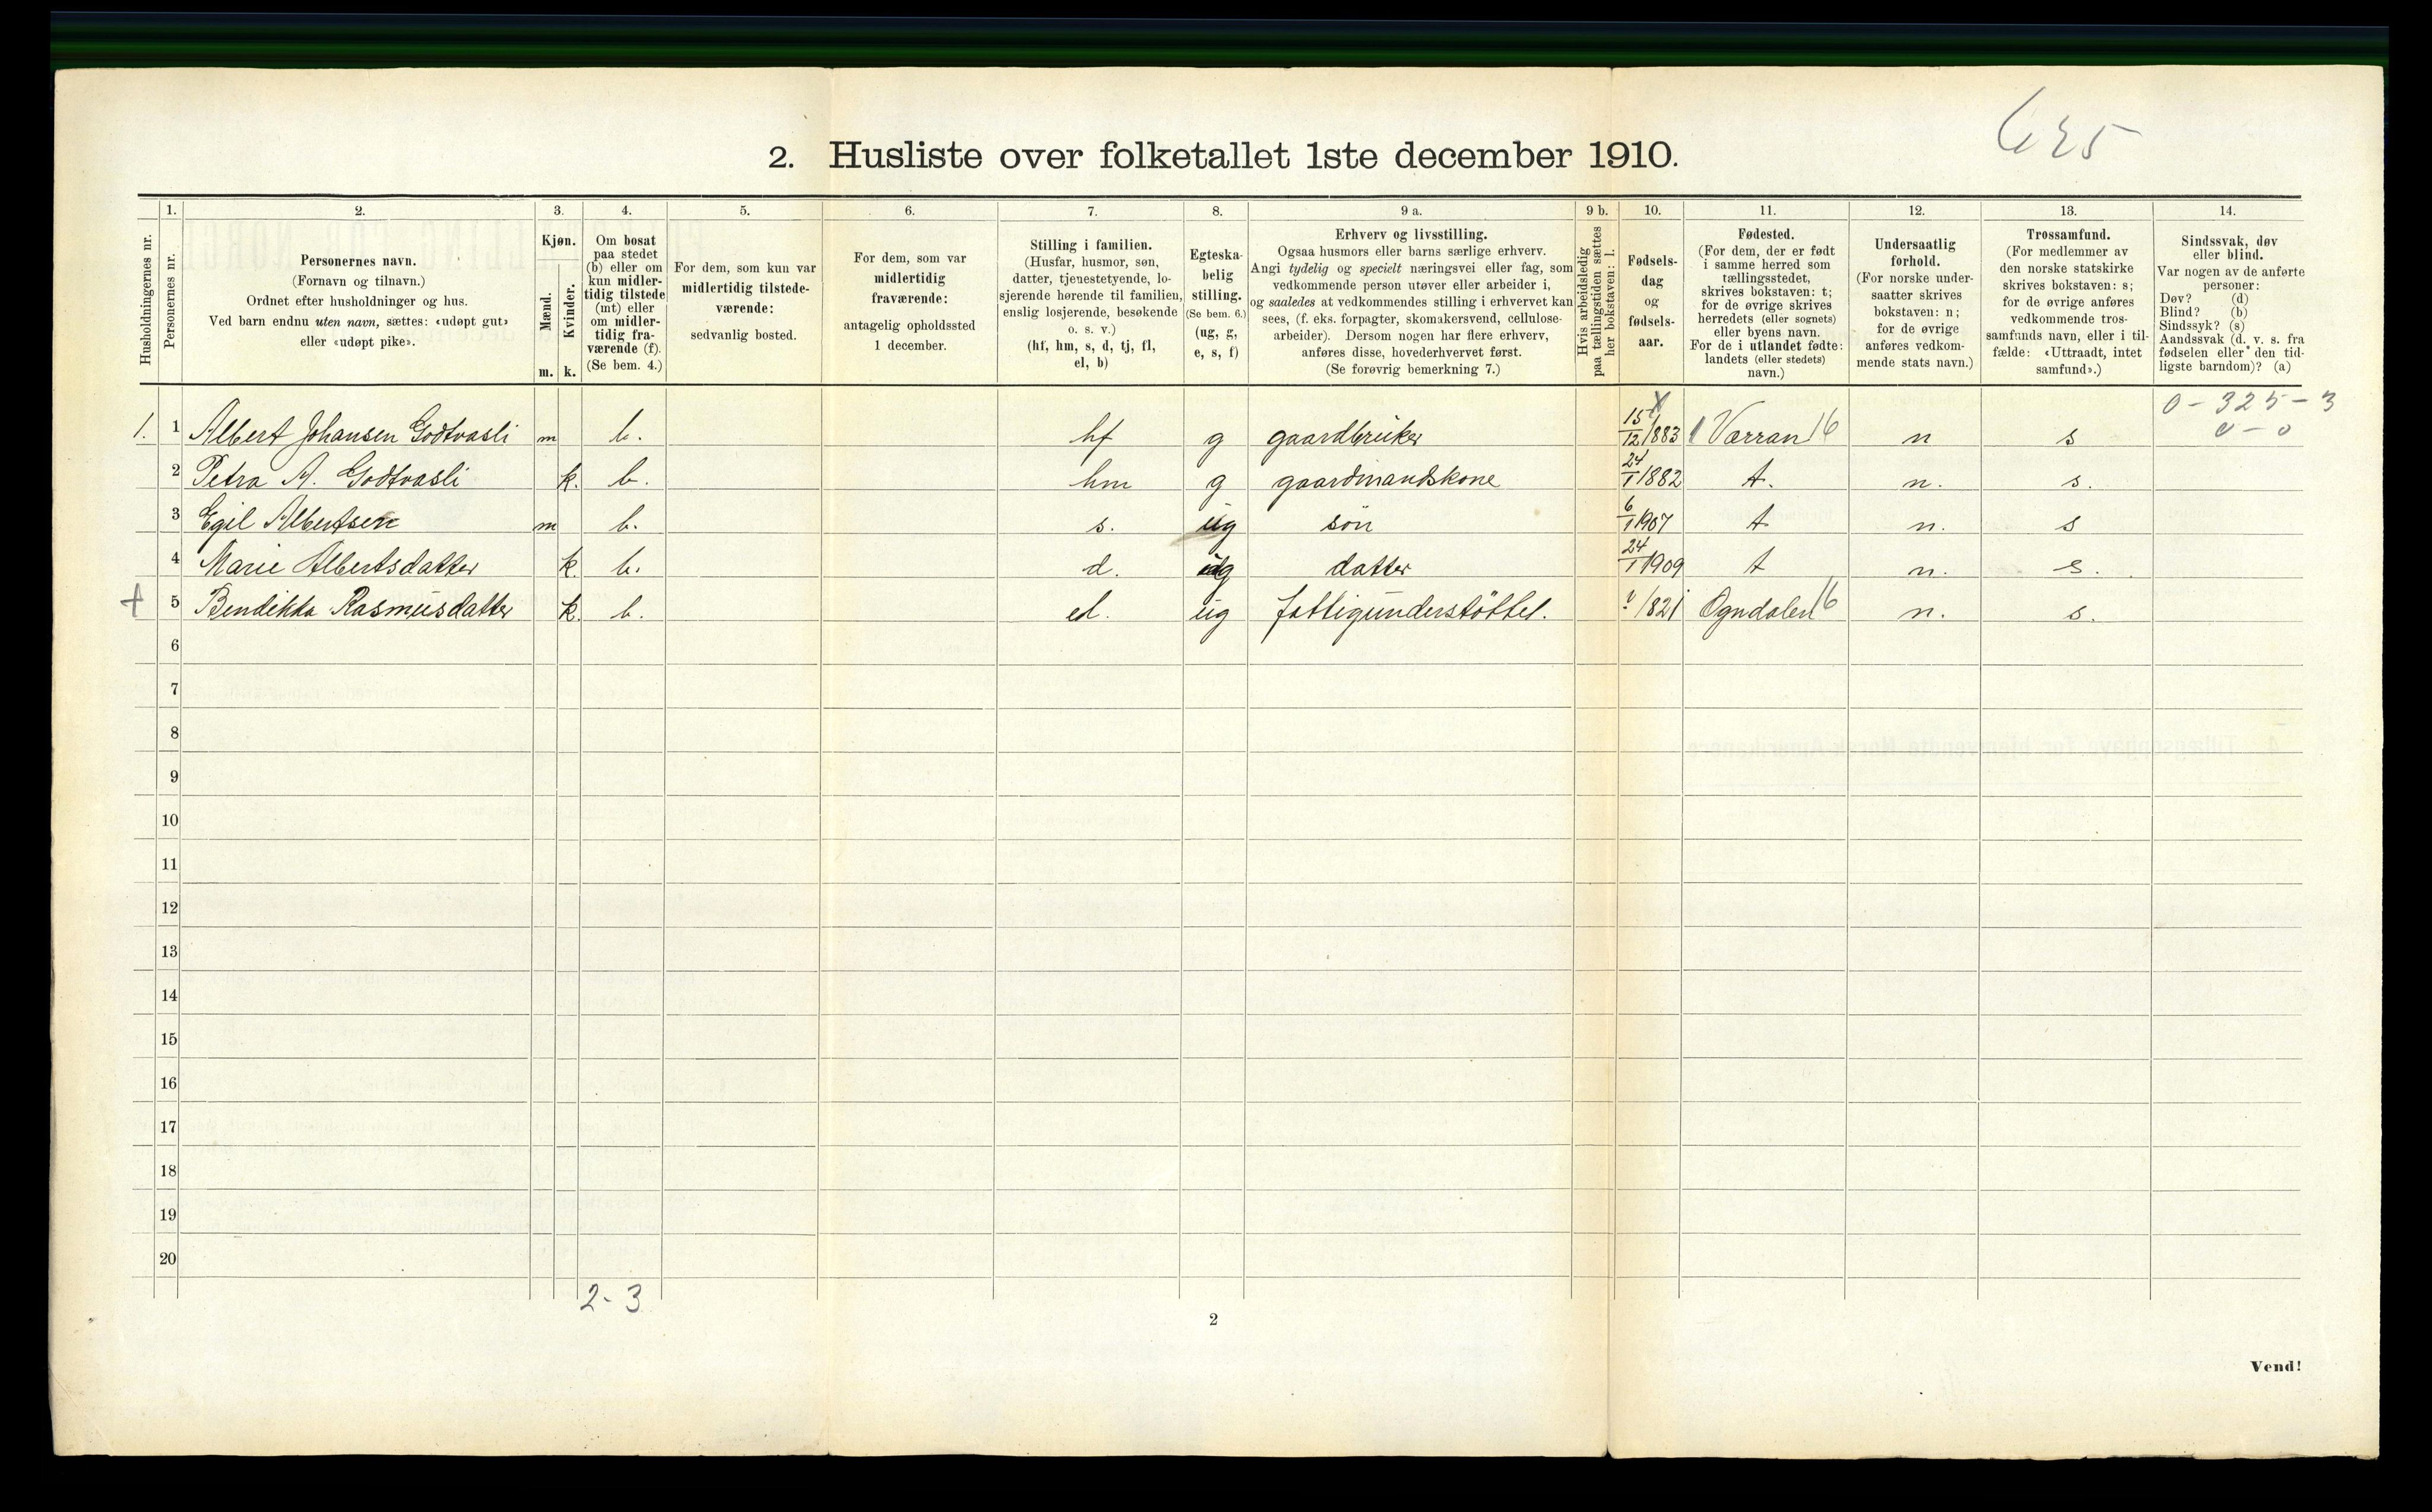 625
2. Husliste over folketallet 1ste december 1910.
Husholdningernes nr.
1.
Personernes nr.
2.
Personernes navn.
(Fornavn og tilnavn.)
Ordnet efter husholdninger og hus.
Ved barn endnu uten navn, sættes: «udøpt gut»
eller «udøpt pike».
3.
Kjøn.
Mænd.
Kvinder.
m. k.
4.
Om bosat
paa stedet
(b) eller om
kun midler-
tidig tilstede
(mt) eller
om midler-
tidig fra-
værende (f).
(Se bem. 4.)
5.
For dem, som kun var
midlertidig tilstede-
værende:
sedvanlig bosted.
6.
For dem, som var
midlertidig
fraværende:
antagelig opholdssted
1 december.
7.
Stilling i familien.
(Husfar, husmor, søn,
datter, tjenestetyende, lo-
sjerende hørende til familien,
enslig losjerende, besøkende
o. s. v.)
(hf, hm, s, d, tj, fl,
el, b)
8.
Egteska-
belig
stilling.
(Se bem. 6.)
(ug, g,
e, s, f)
9 a.
Erhverv og livsstilling.
Ogsaa husmors eller barns særlige erhverv.
Angi tydelig og specielt næringsvei eller fag, som
vedkommende person utøver eller arbeider i,
og saaledes at vedkommendes stilling i erhvervet kan
sees, (f. eks. forpagter, skomakersvend, cellulose-
arbeider). Dersom nogen har flere erhverv,
anføres disse, hovederhvervet først.
(Se forøvrig bemerkning 7.)
9 b.
Hvis arbeidsledig
paa tællingstiden sættes
her bokstaven: l.
10.
Fødsels-
dag
og
fødsels-
aar.
11.
Fødested.
(For dem, der er født
i samme herred som
tællingsstedet,
skrives bokstaven: t;
for de øvrige skrives
herredets (eller sognets)
eller byens navn.
For de i utlandet fødte:
landets (eller stedets)
navn.)
12.
Undersaatlig
forhold.
(For norske under-
saatter skrives
bokstaven: n;
for de øvrige
anføres vedkom-
mende stats navn.)
13.
Trossamfund.
(For medlemmer av
den norske statskirke
skrives bokstaven: s;
for de øvrige anføres
vedkommende tros-
samfunds navn, eller i til-
fælde: «Uttraadt, intet
samfund».)
14.
Sindssvak, døv
eller blind.
Var nogen av de anførte
personer:
Døv? (d)
Blind? (b)
Sindssyk? (s)
Aandssvak (d. v. s. fra
fødselen eller den tid-
ligste barndom)? (a)
0 - 325 - 3
0 - 0
1. 1 Albert Johansen Godtvasli m b. hf g gaardbruker 15/12 1883 Værran 16 n s
2 Petra A. Godtvasli k. b. hm g gaardmandskone 24/1 1882 t. n. s.
3 Egil Albertsen m b. s. ug søn 6/1 1907 t n. s
4 Marie Albertsdatter k. b. d. ug datter 24/1 1909 t n. s.
5 Bendikka Rasmusdatter k. b. el. ug fattigunderstöttet. ? 1821 Ogndalen 16 n. s.
6
7
8
9
10
11
12
13
14
15
16
17
18
19
20
2 - 3
2
Vend!